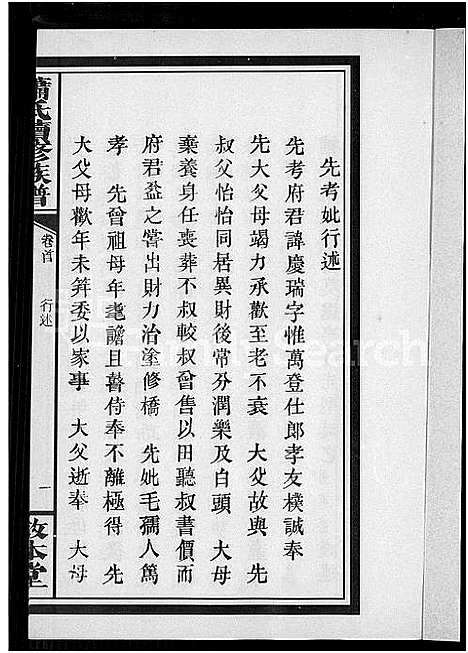 先考妣行述
先考府君諱慶瑞字惟萬登仕郎孝友樸誠奉
先大父母竭力承歡至老不衰 大父故與 先
叔父怡怡同居異財後常分潤樂及白頭 大母
棄養身任喪葬不叔較叔曾售以田聽叔書價而
府君益之嘗出財力治塗修橋 先妣毛孺人篤
孝 先曾祖母年耄譫且瞽侍奉不離極得 先
大父母歡年未筭委以家事 大父逝奉 大母
蕭氏續修族譜
卷首 行述 一
敦本堂